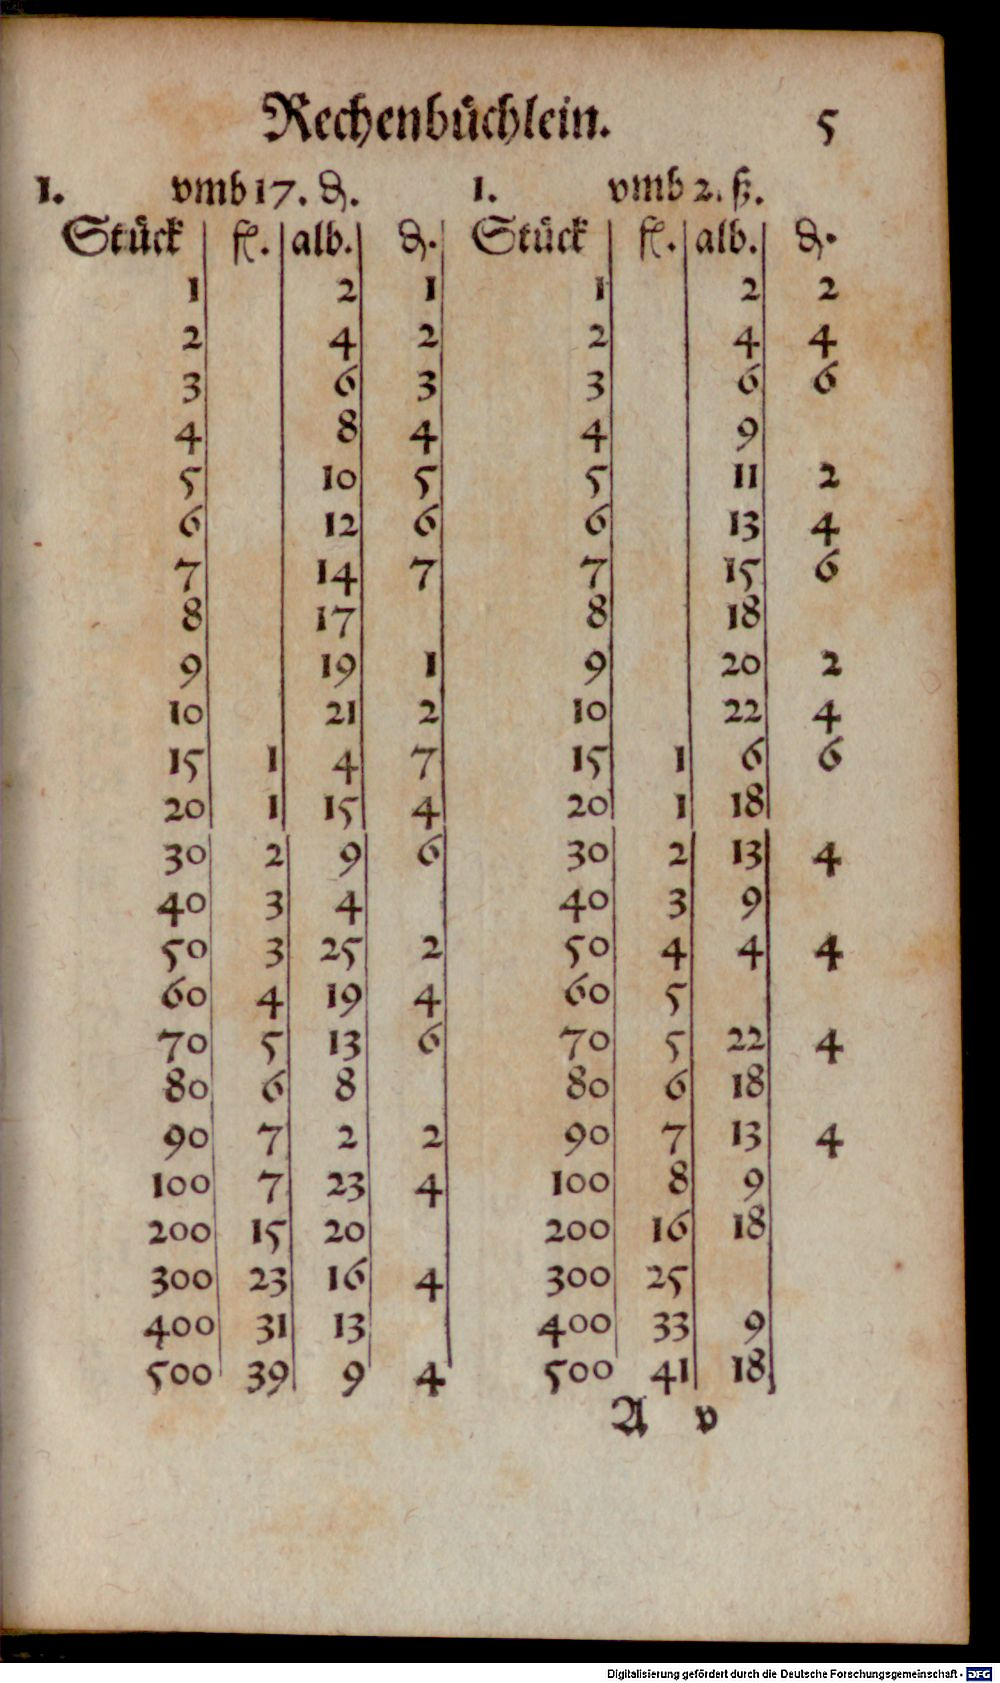 Rechenbüchlein. 5
1. vmb 17. ₰. 1. vmb 2. ß.
Stück fl. alb. ₰. Stück fl. alb. ₰.
1 2 1 1 2 2
2 4 2 2 4 4
3 6 3 3 6 6
4 8 4 4 9
5 10 5 5 11 2
6 12 6 6 13 4
7 14 7 7 15 6
8 17 8 18
9 19 1 9 20 2
10 21 2 10 22 4
15 1 4 7 15 1 6 6
20 1 15 4 20 1 18
30 2 9 6 30 2 13 4
40 3 4 40 3 9
50 3 25 2 50 4 4 4
60 4 19 4 60 5
70 5 13 6 70 5 22 4
80 6 8 80 6 18
90 7 2 2 90 7 13 4
100 7 23 4 100 8 9
200 15 20 200 16 18
300 23 16 4 300 25
400 31 13 400 33 9
500 39 9 4 500 41 18
A v
Digitalisierung gefördert durch die Deutsche Forschungsgemeinschaft - DFG